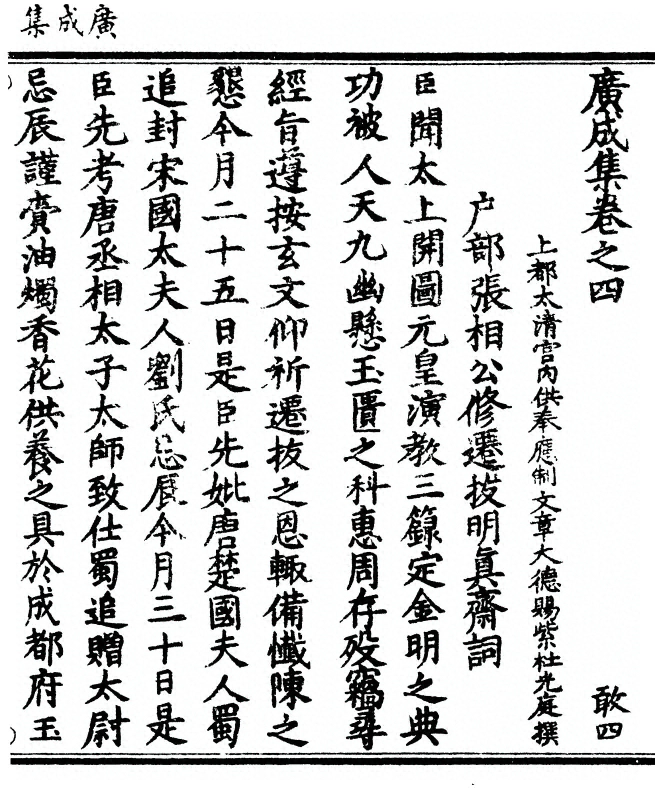 廣成集
廣成集卷之四
敢四
上都太清宮內供奉應制文章大德賜紫杜光庭撰
户部張相公修遷拔明真齋詞
臣聞太上開圖元皇演教三籙定金明之典
功被人天九幽懸玉匱之科惠周存歿竊尋
經旨遵按玄文仰祈遷拔之恩輙備懺陳之
懇今月二十五日是臣先妣唐楚國夫人蜀
追封宋國太夫人劉氏忌辰今月三十日是
臣先考唐丞相太子太師致仕蜀追贈太尉
忌辰謹賫油燭香花供養之具於成都府玉